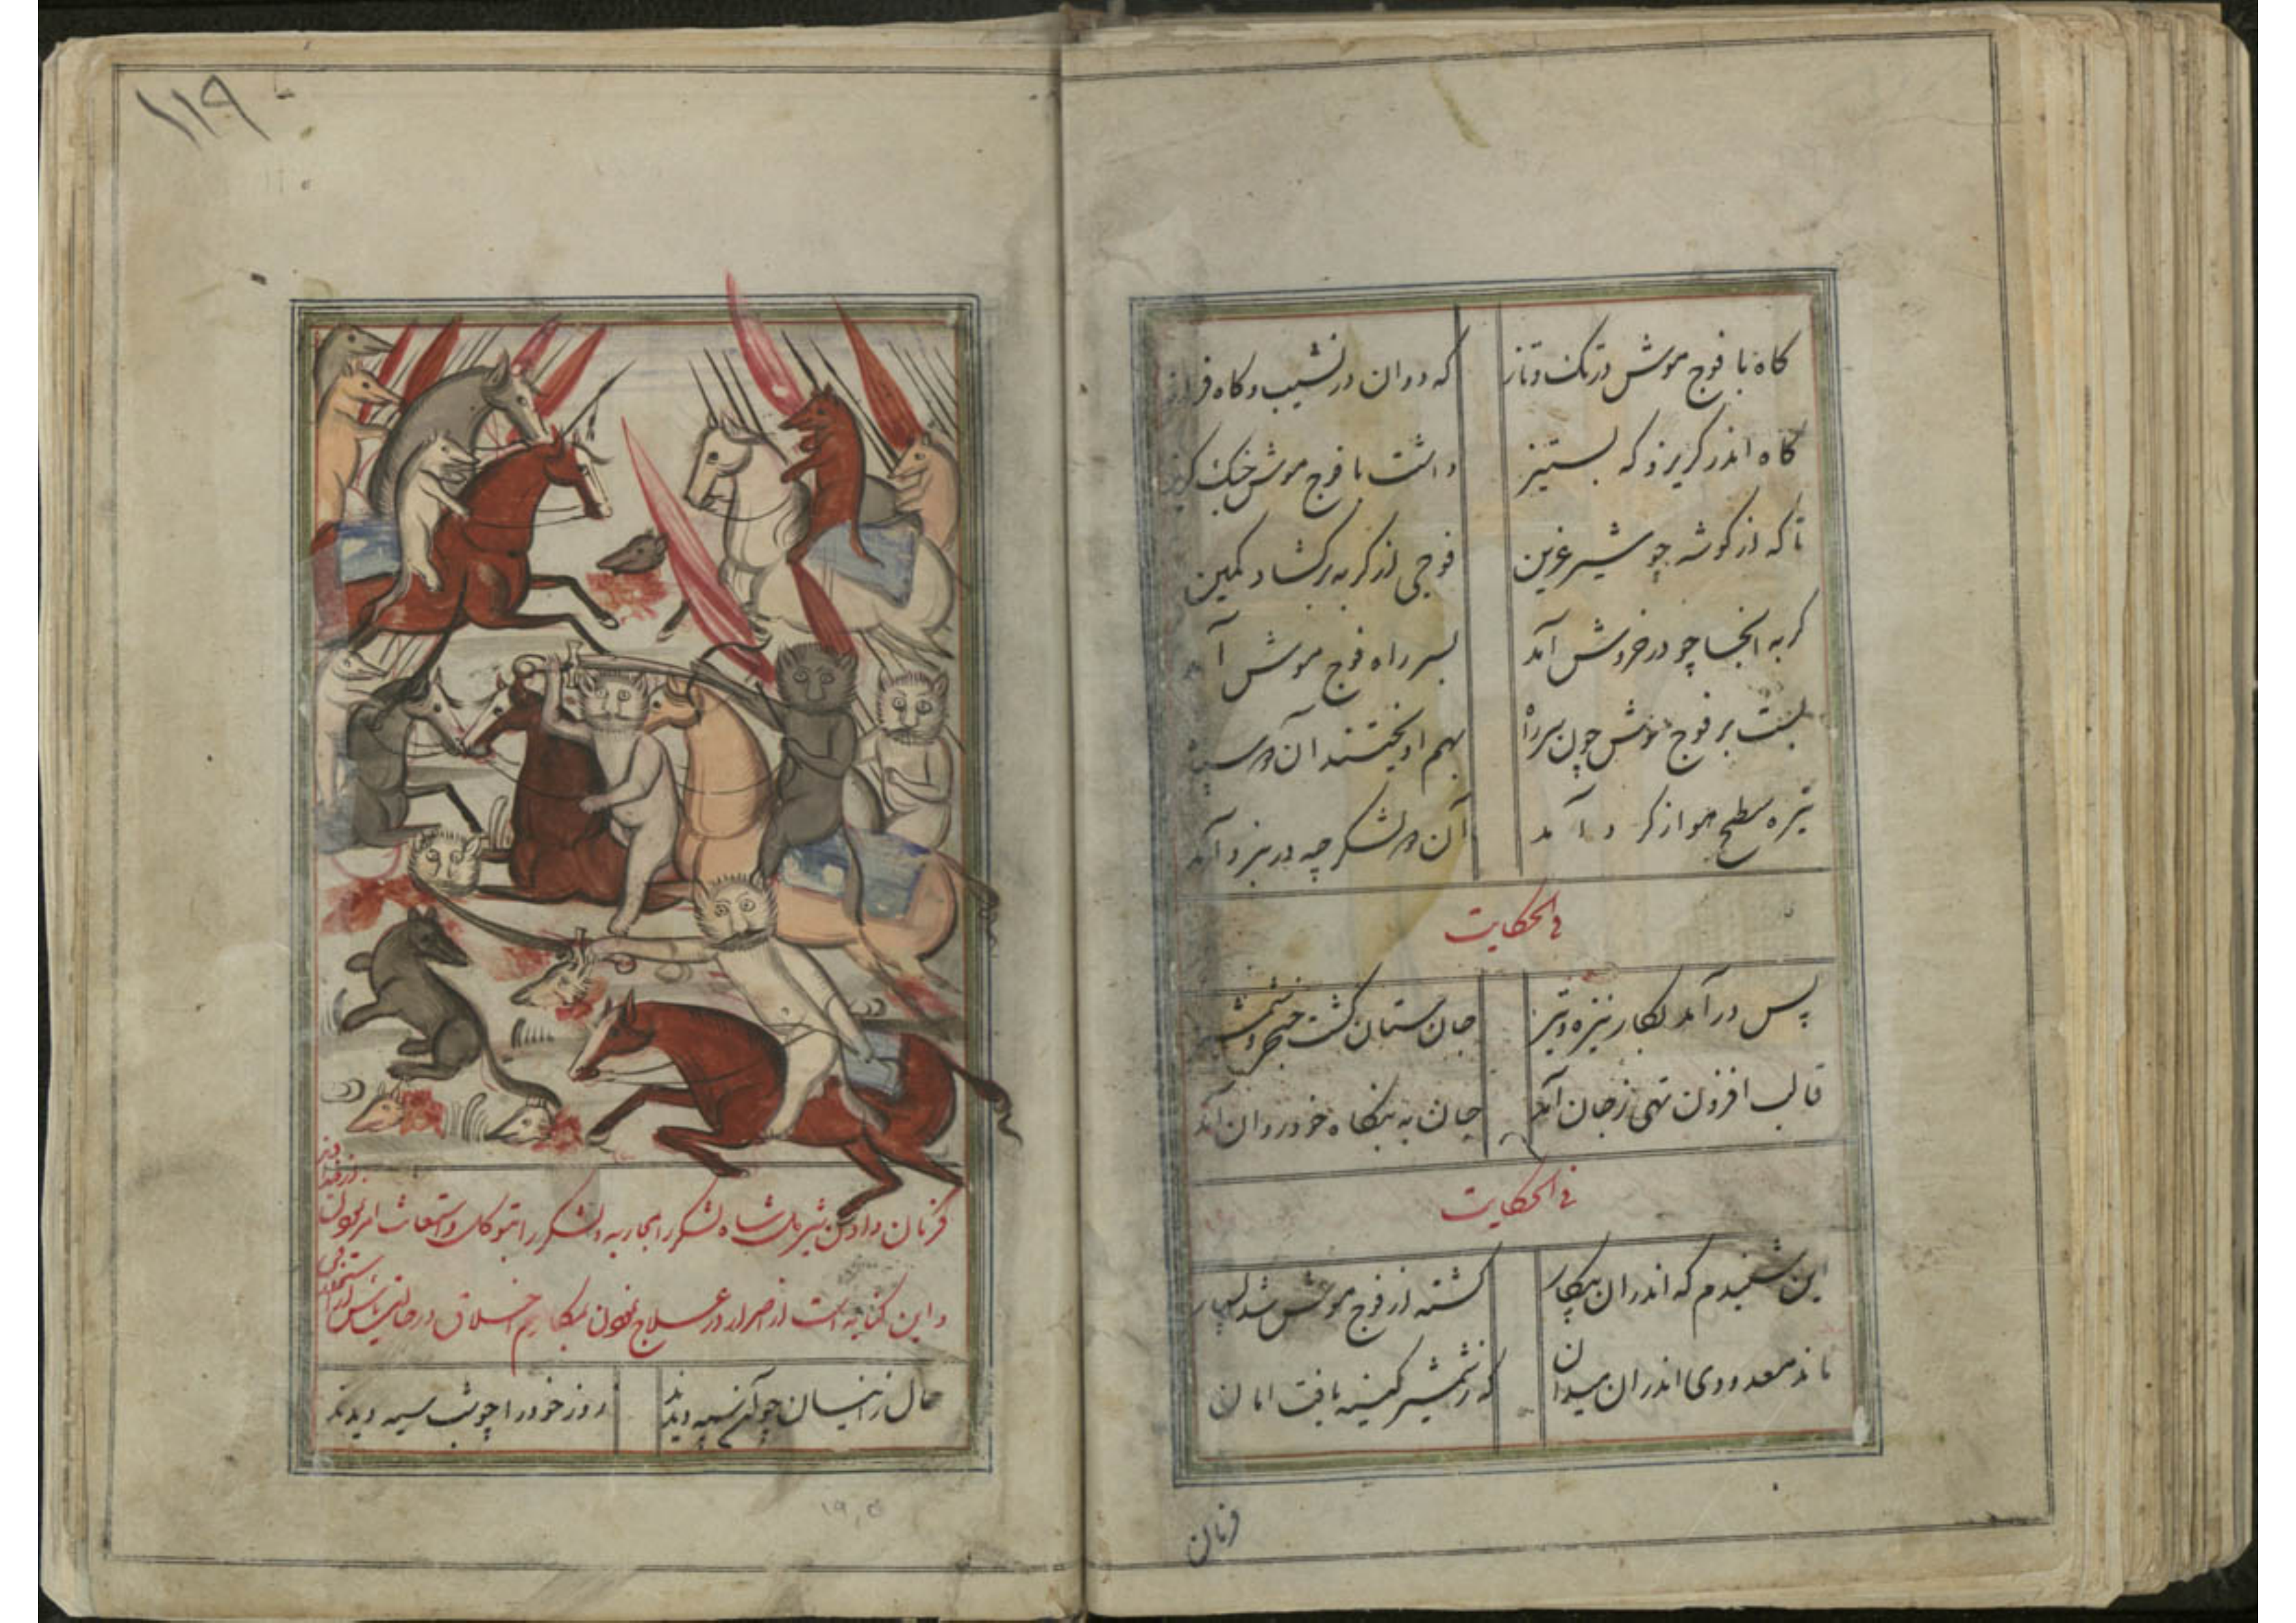 گاه با فوج موش در تک و تاز
که دوان در نشیب و گاه فراز
گاه اندر گریز و که بستیز
داشت با فوج موش جنک
تا که از گوشه چو شیر عرین
فوجی از گربه برگشاد کمین
گربه آنجا چو در خروش آمد
بسر راه فوج موش آمد
بست بر فوج موش چون سر راه
بهم آویختند آن دو سپاه
تیره سطح هوا ز گرد آمد
آن دو لشکر چه در نبرد آمد
فی الحکایت
پس در آمد بکار نیزه و تیر
جان ستان گشت خنجر و شمشیر
قالب افزون تهی ز جان آمد
جان به بنگاه خود روان آمد
فی الحکایت
این شنیدم که اندران پیکار
کشته از فوج موش شد بسیار
ماند معدودی اندران میدان
که ز شمشیر کینه یافت امان
فرمان
۱۱۹
فرمان دادن شیر ملک شاه لشکر را بمحاربه و لشکر را بتوکل و استعانت امر
و این کنایه است از اصرار در علاج نفوس بمکارم اخلاق در حالت یأس
حال زینسان چو آن سپه دیدند
روز خود را چو شب سیه دیدند